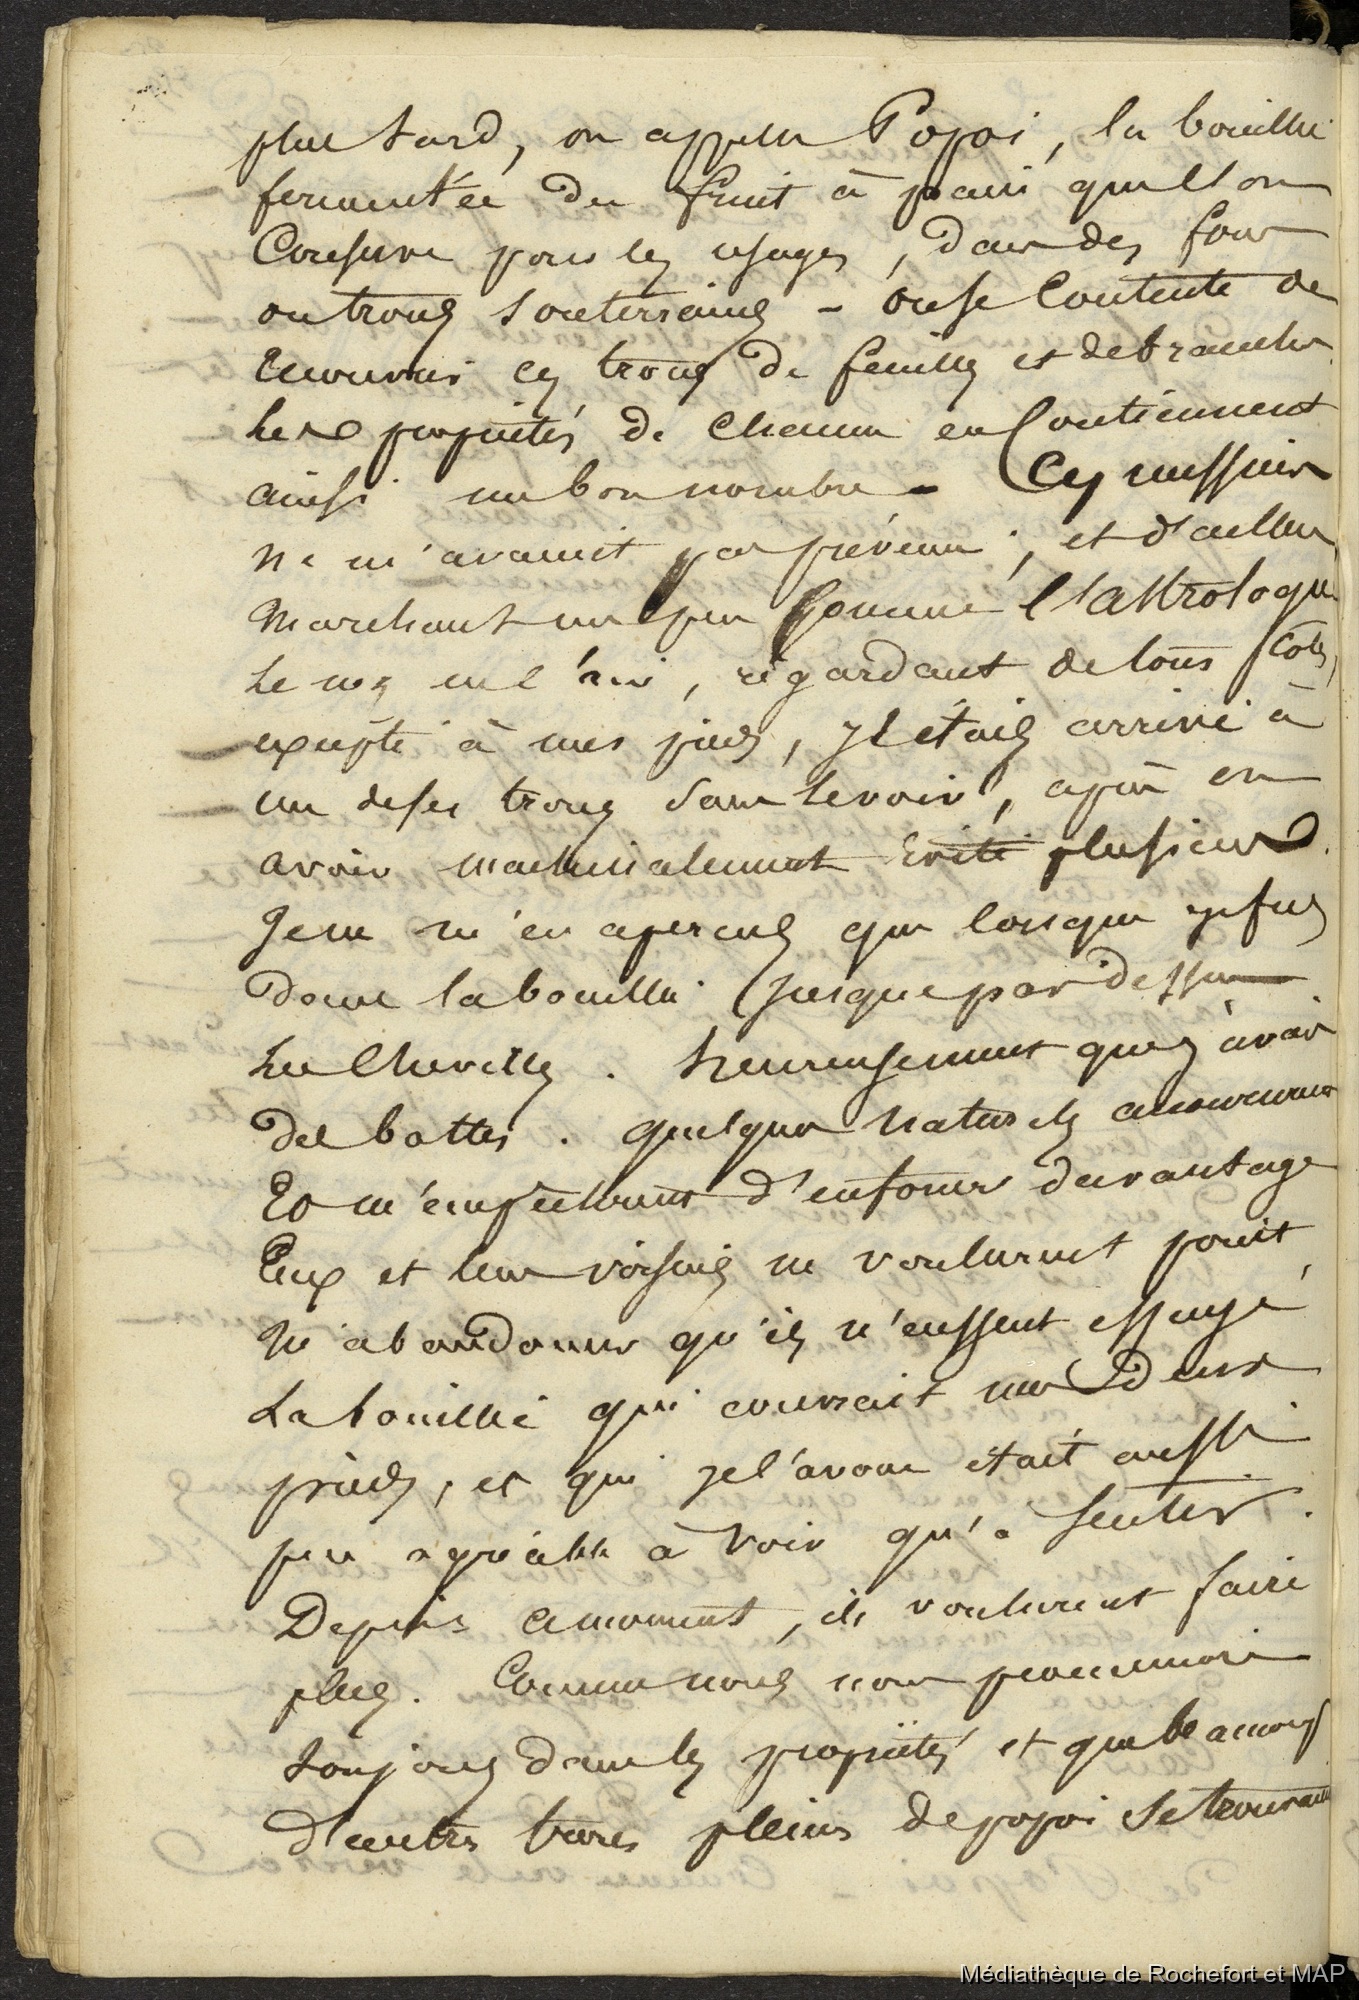 plus tard, on appelle Popoi, la bouillie
fermentée du fruit à pain que l'on
Conserve pour les usages, dans des fours
ou trous souterrains - on se Contente de
recouvrir ces trous de feuilles et de branches
Les propriétés de Chacun en Contiennent
ainsi un bon nombre - Ces messieurs
ne m'avaient pas prévenu, et d'ailleurs
Marchant un peu Comme l'astrologue
le nez en l'air, regardant de tous Cotés,
excepté à mes pieds, J'étais arrivé à
un de ses trous sans le voir, après en
avoir machinalement évité plusieurs.
Je ne m'en aperçus que lorsque j'y fus
dans la bouillie jusque par dessus
les Chevilles. heureusement que j'avais
des bottes. quelques naturels accoururent
Et m'empêchèrent d'enfoncer davantage
Eux et leurs voisins ne voulurent point
m'abandonner qu'ils n'eussent essuyé
La bouillie qui couvrait mes deux
pieds, et qui je l'avoue était aussi
peu agréable à Voir qu'à Sentir.
Depuis ce moment, ils voulurent faire
plus. Comme nous nous promenions
toujours dans les propriétés et que beaucoup
d'autres trous pleins de popoi se trouvaient
Médiathèque de Rochefort et MAP